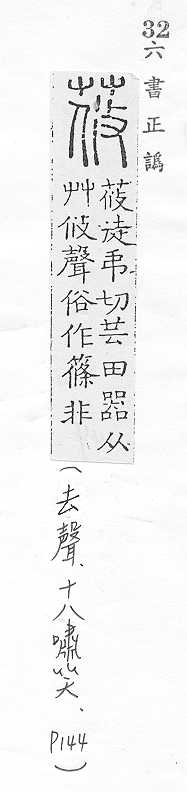 32
六書正譌
莜
莜徒弔切芸田器从
艸攸聲俗作篠非
(去聲、十八嘯笑、P144)